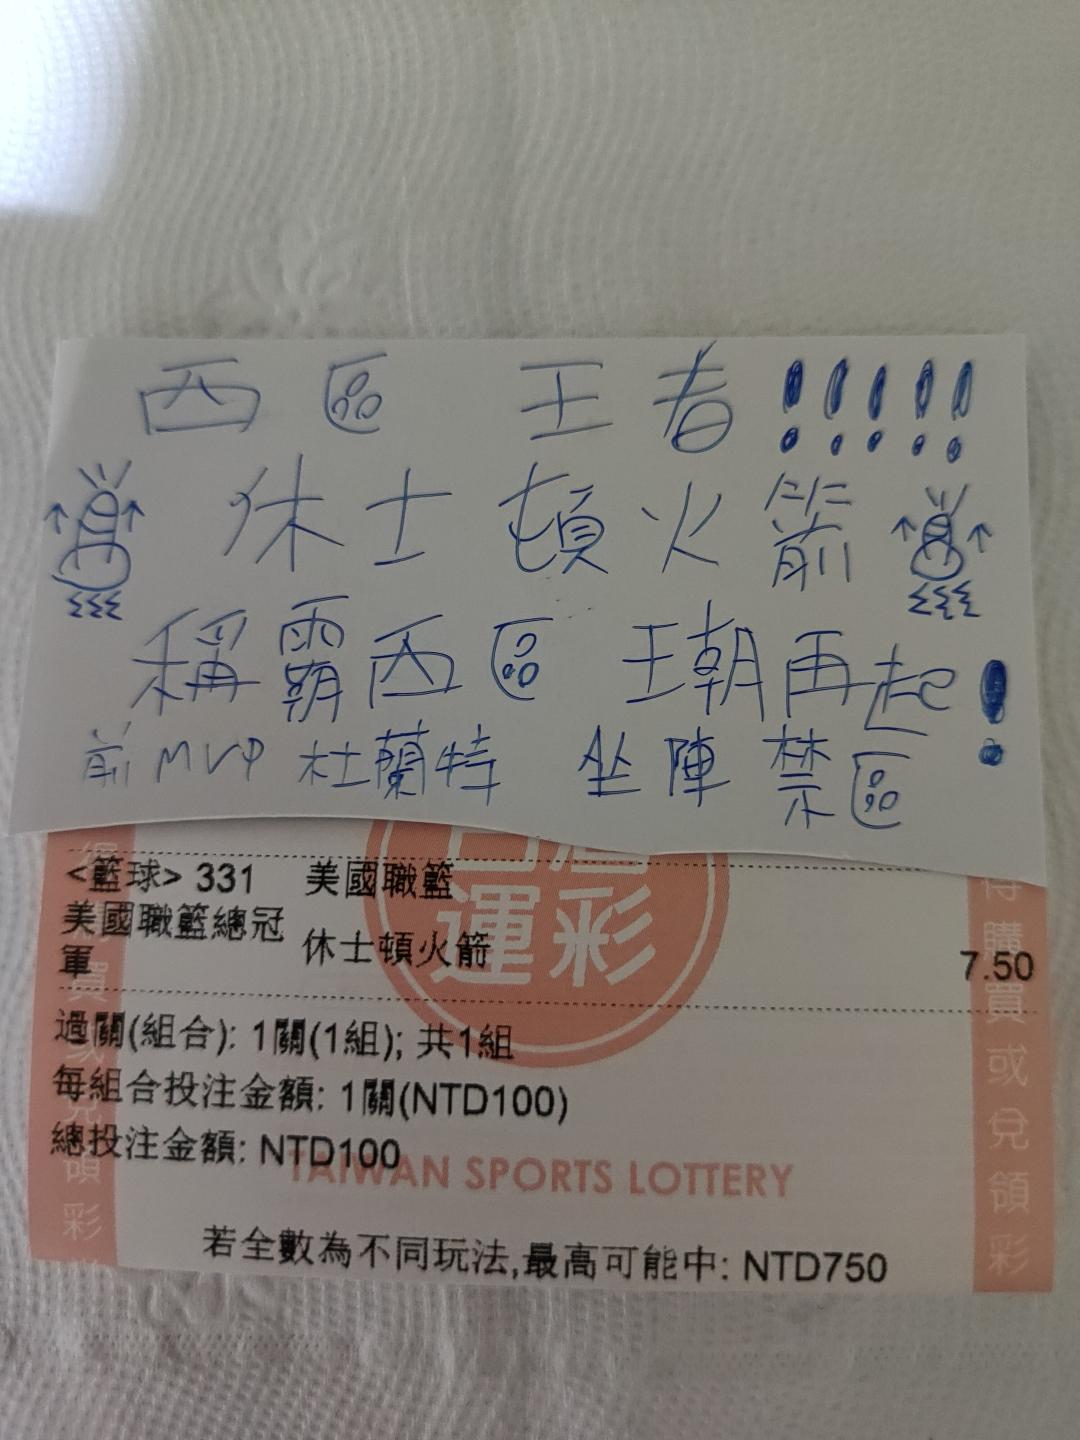 西區 王者!!!!!
休士頓火箭
稱霸西區 王朝再起!
前MVP 杜蘭特 坐陣禁區
<籃球> 331 美國職籃
美國職籃總冠軍 休士頓火箭 7.50
過關(組合): 1關(1組); 共1組
每組合投注金額: 1關(NTD100)
總投注金額: NTD100
TAIWAN SPORTS LOTTERY
若全數為不同玩法,最高可能中: NTD750
運彩
購買或兌領彩